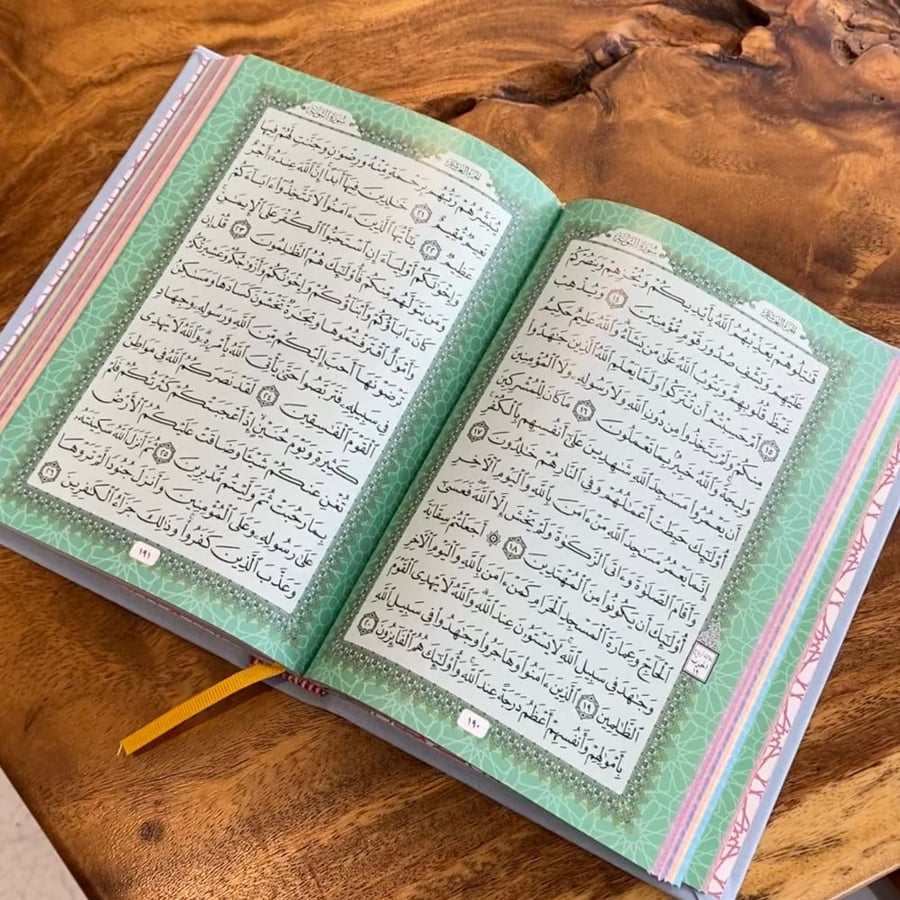 سُورَةُ التَّوْبَةِ
الجُزْءُ العَاشِرُ
قَٰتِلُوهُمْ يُعَذِّبْهُمُ ٱللَّهُ بِأَيْدِيكُمْ وَيُخْزِهِمْ وَيَنصُرْكُمْ
عَلَيْهِمْ وَيَشْفِ صُدُورَ قَوْمٍ مُّؤْمِنِينَ ١٤ وَيُذْهِبْ
غَيْظَ قُلُوبِهِمْ وَيَتُوبُ ٱللَّهُ عَلَىٰ مَن يَشَآءُ وَٱللَّهُ عَلِيمٌ حَكِيمٌ
١٥ أَمْ حَسِبْتُمْ أَن تُتْرَكُوا۟ وَلَمَّا يَعْلَمِ ٱللَّهُ ٱلَّذِينَ جَٰهَدُوا۟
مِنكُمْ وَلَمْ يَتَّخِذُوا۟ مِن دُونِ ٱللَّهِ وَلَا رَسُولِهِۦ وَلَا ٱلْمُؤْمِنِينَ
وَلِيجَةً وَٱللَّهُ خَبِيرٌۢ بِمَا تَعْمَلُونَ ١٦ مَا كَانَ لِلْمُشْرِكِينَ
أَن يَعْمُرُوا۟ مَسَٰجِدَ ٱللَّهِ شَٰهِدِينَ عَلَىٰٓ أَنفُسِهِم بِٱلْكُفْرِ
أُو۟لَٰٓئِكَ حَبِطَتْ أَعْمَٰلُهُمْ وَفِى ٱلنَّارِ هُمْ خَٰلِدُونَ ١٧
إِنَّمَا يَعْمُرُ مَسَٰجِدَ ٱللَّهِ مَنْ ءَامَنَ بِٱللَّهِ وَٱلْيَوْمِ ٱلْءَاخِرِ
وَأَقَامَ ٱلصَّلَوٰةَ وَءَاتَى ٱلزَّكَوٰةَ وَلَمْ يَخْشَ إِلَّا ٱللَّهَ فَعَسَىٰٓ
أُو۟لَٰٓئِكَ أَن يَكُونُوا۟ مِنَ ٱلْمُهْتَدِينَ ١٨ ۞ أَجَعَلْتُمْ سِقَايَةَ
ٱلْحَآجِّ وَعِمَارَةَ ٱلْمَسْجِدِ ٱلْحَرَامِ كَمَنْ ءَامَنَ بِٱللَّهِ وَٱلْيَوْمِ ٱلْءَاخِرِ
وَجَٰهَدَ فِى سَبِيلِ ٱللَّهِ لَا يَسْتَوُۥنَ عِندَ ٱللَّهِ وَٱللَّهُ لَا يَهْدِى ٱلْقَوْمَ
ٱلظَّٰلِمِينَ ١٩ ٱلَّذِينَ ءَامَنُوا۟ وَهَاجَرُوا۟ وَجَٰهَدُوا۟ فِى سَبِيلِ ٱللَّهِ
بِأَمْوَٰلِهِمْ وَأَنفُسِهِمْ أَعْظَمُ دَرَجَةً عِندَ ٱللَّهِ وَأُو۟لَٰٓئِكَ هُمُ ٱلْفَآئِزُونَ ٢٠
١٩٠
سُورَةُ التَّوْبَةِ
الجُزْءُ العَاشِرُ
يُبَشِّرُهُمْ رَبُّهُم بِرَحْمَةٍ مِّنْهُ وَرِضْوَٰنٍ وَجَنَّٰتٍ لَّهُمْ فِيهَا
نَعِيمٌ مُّقِيمٌ ٢١ خَٰلِدِينَ فِيهَآ أَبَدًا إِنَّ ٱللَّهَ عِندَهُۥٓ أَجْرٌ
عَظِيمٌ ٢٢ يَٰٓأَيُّهَا ٱلَّذِينَ ءَامَنُوا۟ لَا تَتَّخِذُوٓا۟ ءَابَآءَكُمْ
وَإِخْوَٰنَكُمْ أَوْلِيَآءَ إِنِ ٱسْتَحَبُّوا۟ ٱلْكُفْرَ عَلَى ٱلْإِيمَٰنِ
وَمَن يَتَوَلَّهُم مِّنكُمْ فَأُو۟لَٰٓئِكَ هُمُ ٱلظَّٰلِمُونَ ٢٣ قُلْ إِن
كَانَ ءَابَآؤُكُمْ وَأَبْنَآؤُكُمْ وَإِخْوَٰنُكُمْ وَأَزْوَٰجُكُمْ وَعَشِيرَتُكُمْ
وَأَمْوَٰلٌ ٱقْتَرَفْتُمُوهَا وَتِجَٰرَةٌ تَخْشَوْنَ كَسَادَهَا وَمَسَٰكِنُ
تَرْضَوْنَهَآ أَحَبَّ إِلَيْكُم مِّنَ ٱللَّهِ وَرَسُولِهِۦ وَجِهَادٍ
فِى سَبِيلِهِۦ فَتَرَبَّصُوا۟ حَتَّىٰ يَأْتِىَ ٱللَّهُ بِأَمْرِهِۦ وَٱللَّهُ لَا يَهْدِى
ٱلْقَوْمَ ٱلْفَٰسِقِينَ ٢٤ لَقَدْ نَصَرَكُمُ ٱللَّهُ فِى مَوَاطِنَ
كَثِيرَةٍ وَيَوْمَ حُنَيْنٍ إِذْ أَعْجَبَتْكُمْ كَثْرَتُكُمْ فَلَمْ
تُغْنِ عَنكُمْ شَيْـًٔا وَضَاقَتْ عَلَيْكُمُ ٱلْأَرْضُ
بِمَا رَحُبَتْ ثُمَّ وَلَّيْتُم مُّدْبِرِينَ ٢٥ ثُمَّ أَنزَلَ ٱللَّهُ سَكِينَتَهُۥ
عَلَىٰ رَسُولِهِۦ وَعَلَى ٱلْمُؤْمِنِينَ وَأَنزَلَ جُنُودًا لَّمْ تَرَوْهَا
وَعَذَّبَ ٱلَّذِينَ كَفَرُوا۟ وَذَٰلِكَ جَزَآءُ ٱلْكَٰفِرِينَ ٢٦
١٩١